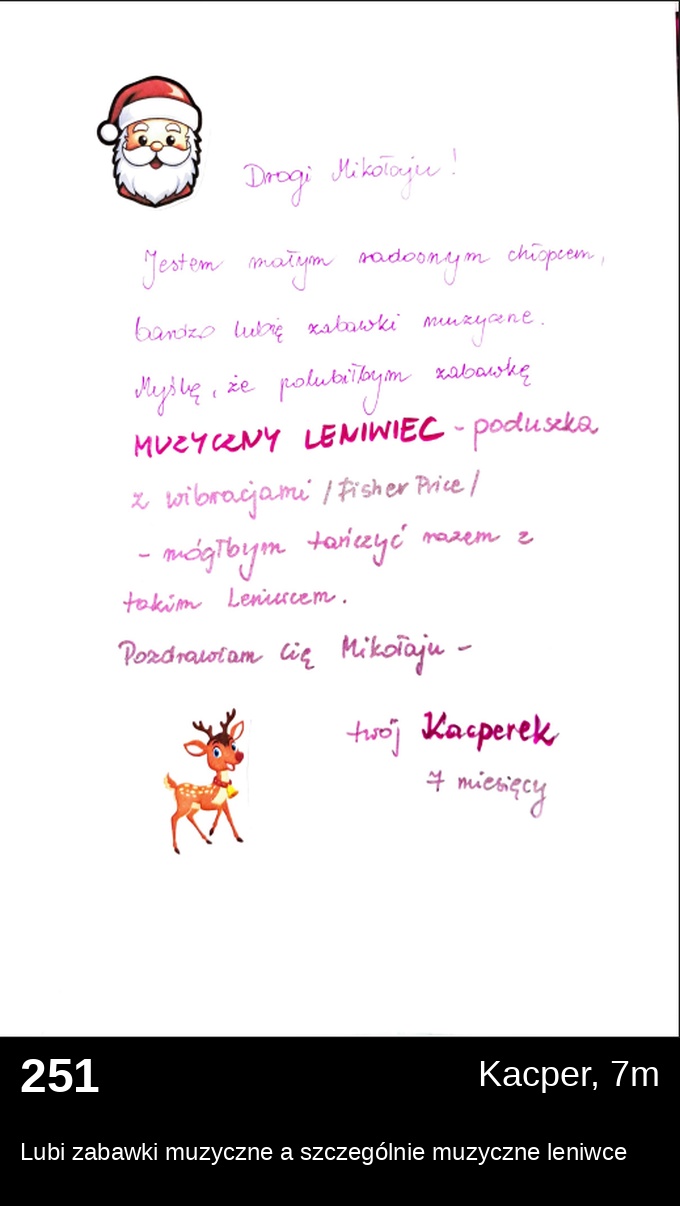 Drogi Mikołaju!
Jestem małym radosnym chłopcem,
bardzo lubię zabawki muzyczne.
Myślę, że polubiłbym zabawkę
MUZYCZNY LENIWIEC - poduszka
z wibracjami /Fisher Price/
- mógłbym tańczyć razem z
takim Leniwcem.
Pozdrawiam Cię Mikołaju -
twój Kacperek
7 miesięcy
251
Kacper, 7m
Lubi zabawki muzyczne a szczególnie muzyczne leniwce